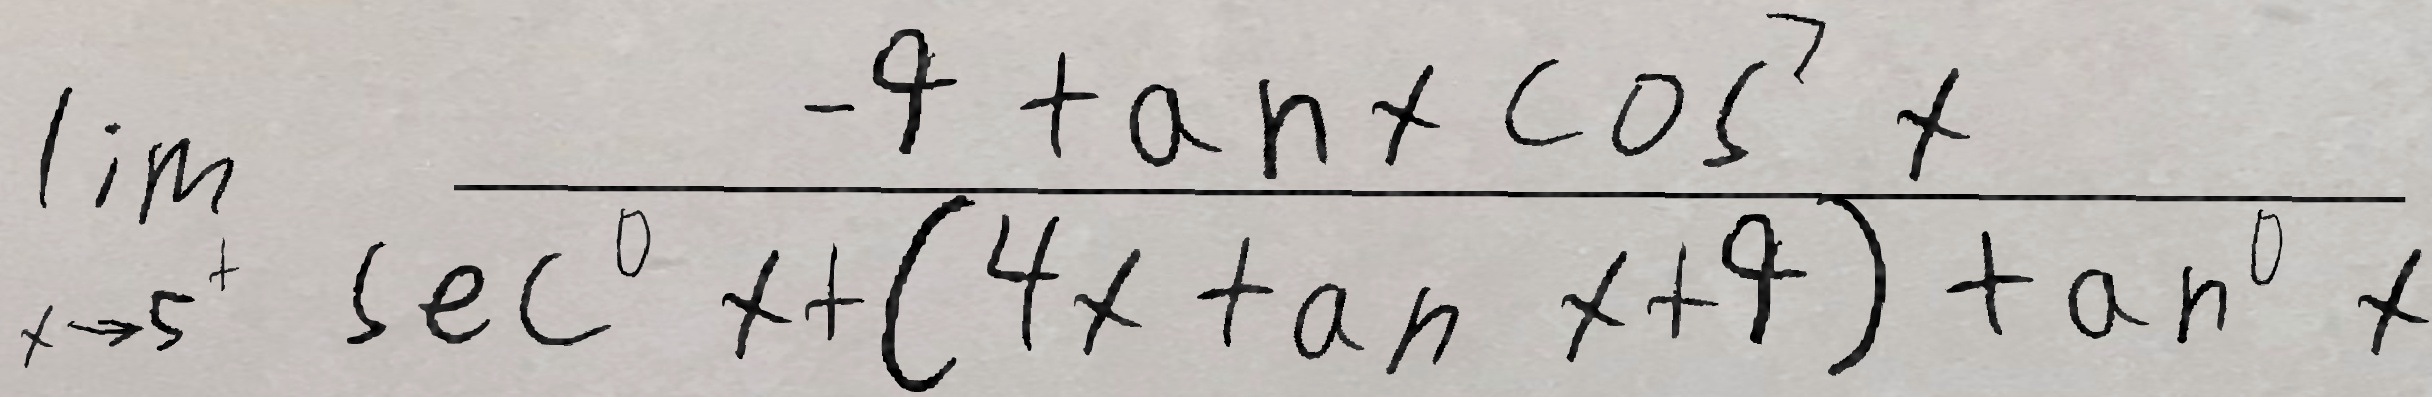 \lim_{x \to 5^+} \frac{-9 \tan x \cos^7 x}{\sec^0 x + (4x \tan x + 9) \tan^0 x}